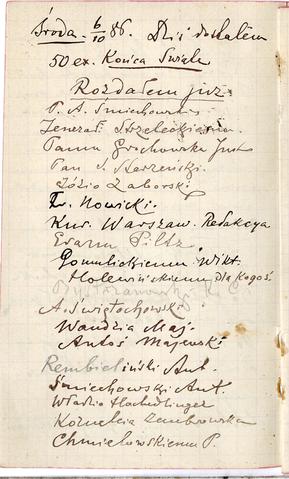 Środa. 6/10 86. Dziś dostałem
50 ex. Końca Świata
Rozdałem już
P. A. Smiechowski
Panna Grochowska
Pan J.
Zózio Zaborski
Fr. Nowicki.
Kur. Warszaw. Redakcya
Erazm Piltz
Gomulickiemu Wikt.
Holewińskiemu dla kogoś
A. Świętochowski
Wandzia Maj.
Antoś Majewski
Rembieliński Ant.
Śmiechowski Ant.
Władzio
Kornelia Dembrowska
Chmielowskiemu P.